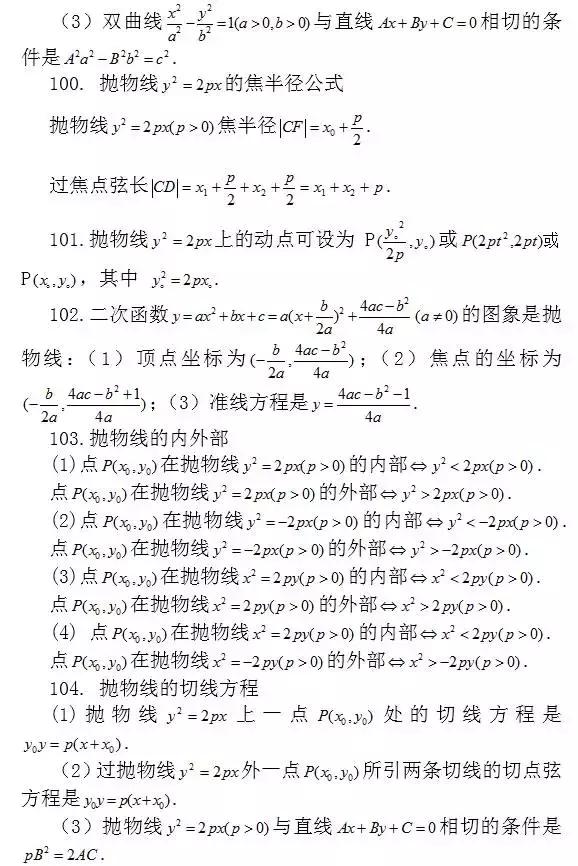 (3) 双曲线 x²/a² − y²/b² =1(a>0,b>0) 与直线 Ax+By+C=0 相切的条
件是 A²a²−B²b²=c².
100. 抛物线 y²=2px 的焦半径公式
抛物线 y²=2px(p>0) 焦半径 |CF|=x₀+p/2.
过焦点弦长 |CD|=x₁+p/2+x₂+p/2=x₁+x₂+p.
101.抛物线 y²=2px 上的动点可设为 P(y₀²/2p,y₀) 或 P(2pt²,2pt)或
P(x₀,y₀), 其中 y₀²=2px₀.
102.二次函数 y=ax²+bx+c=a(x+b/2a)²+(4ac−b²)/4a (a≠0) 的图象是抛
物线:(1) 顶点坐标为 (−b/2a,(4ac−b²)/4a);(2) 焦点的坐标为
(−b/2a,(4ac−b²+1)/4a);(3) 准线方程是 y=(4ac−b²−1)/4a.
103.抛物线的内外部
(1)点 P(x₀,y₀) 在抛物线 y²=2px(p>0) 的内部⇔y²<2px(p>0).
点 P(x₀,y₀) 在抛物线 y²=2px(p>0) 的外部⇔y²>2px(p>0).
(2)点 P(x₀,y₀) 在抛物线 y²=−2px(p>0) 的内部⇔y²<−2px(p>0).
点 P(x₀,y₀) 在抛物线 y²=−2px(p>0) 的外部⇔y²>−2px(p>0).
(3)点 P(x₀,y₀) 在抛物线 x²=2py(p>0) 的内部⇔x²<2py(p>0).
点 P(x₀,y₀) 在抛物线 x²=2py(p>0) 的外部⇔x²>2py(p>0).
(4) 点 P(x₀,y₀) 在抛物线 x²=2py(p>0) 的内部⇔x²<2py(p>0).
点 P(x₀,y₀) 在抛物线 x²=−2py(p>0) 的外部⇔x²>−2py(p>0).
104. 抛物线的切线方程
(1) 抛物线 y²=2px 上一点 P(x₀,y₀) 处的切线方程是
y₀y=p(x+x₀).
(2)过抛物线 y²=2px 外一点 P(x₀,y₀) 所引两条切线的切点弦
方程是 y₀y=p(x+x₀).
(3) 抛物线 y²=2px(p>0) 与直线 Ax+By+C=0 相切的条件是
pB²=2AC.